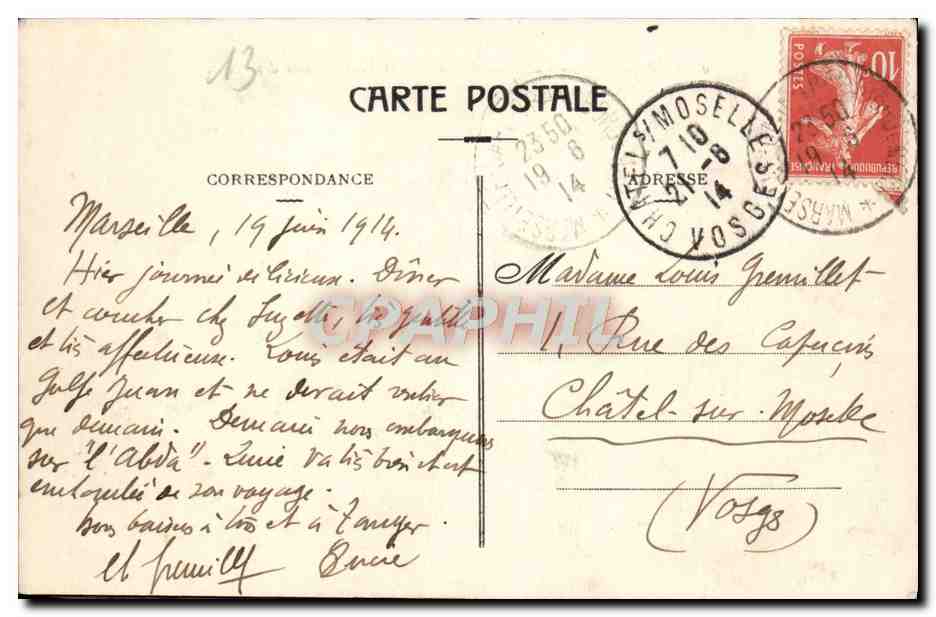 13
CARTE POSTALE
CORRESPONDANCE
ADRESSE
10
POSTES
REPUBLIQUE FRANÇAISE
CHATEL S/ MOSELLE
7 10
21 -6
14
VOSGES
2350
19 6
14
2350
19
14
MARSE
Marseille, 19 juin 1914.
Hier journée délicieuse. Dîner
et coucher chez Suzette, très gentille
et très affectueuse. Louis était au
Golfe Juan et ne devait rentrer
que demain. Demain nous embarquons
sur "l'Abda" - Lucie va très bien et est
enchantée de son voyage.
bons baisers à tous et à Tanger.
Madame Louis Gremillet
1, Rue des Capucins
Châtel-sur-Moselle
(Vosges)
CPAPHIL